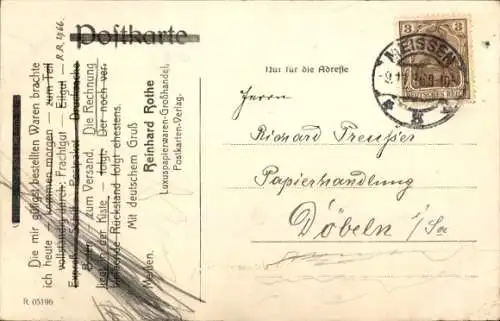 Postkarte
Nur für die Adresse
MEISSEN
3 3
DEUTSCHES REICH
Herrn
Richard Preusser
Papierhandlung
Döbeln i/Sa
Die mir gütigst bestellten Waren brachte
ich heute — kommen morgen — zum Teil
vollständig durch: Frachtgut — Eilgut — R.R. 1966.
Express — Schiff — Postpaket — Drucksache
Boten — zum Versand. Die Rechnung
liegt in der Kiste — folgt. Der noch ver-
bliebene Rückstand folgt ehestens.
Mit deutschem Gruß
Reinhard Rothe
Luxuspapierwaren-Großhandel,
Postkarten-Verlag.
Meißen.
R 05196